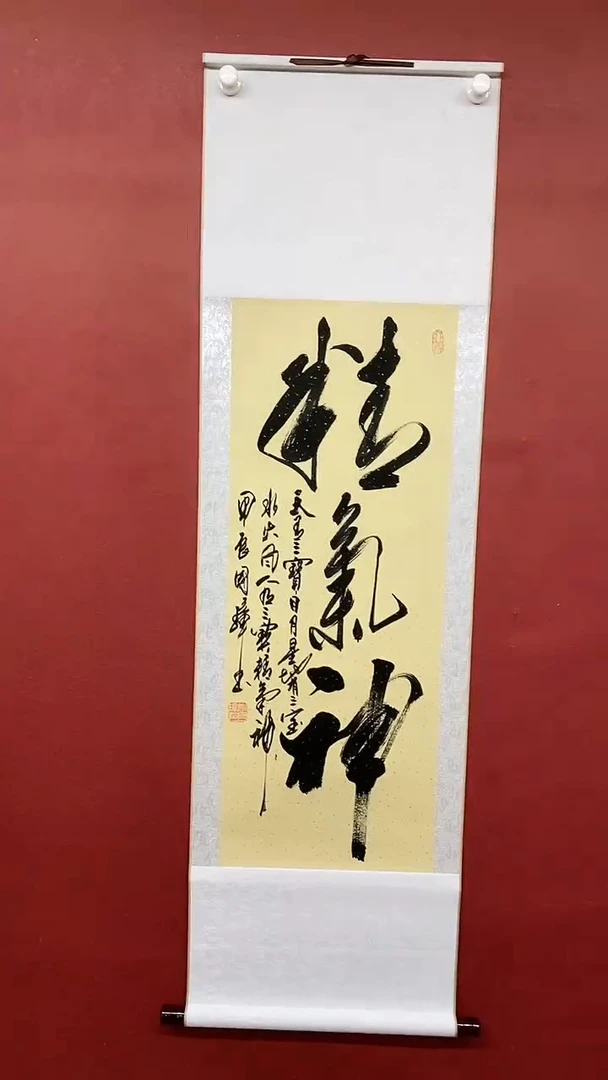 精氣神
天有三寶日月星地有三寶
水火風人有三寶精氣神
甲辰國華書